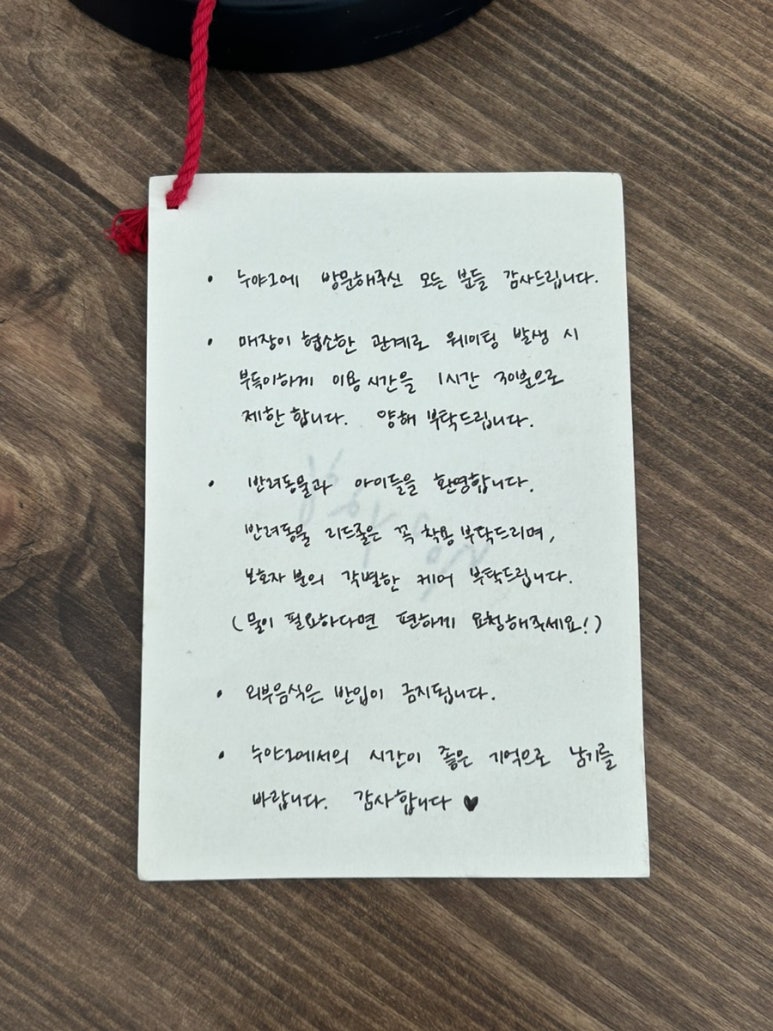 • 누야그에 방문해주신 모든 분들 감사드립니다.
• 매장이 협소한 관계로 웨이팅 발생 시
부득이하게 이용 시간을 1시간 30분으로
제한합니다. 양해 부탁드립니다.
• 반려동물과 아이들을 환영합니다.
반려동물 리드줄은 꼭 착용 부탁드리며,
보호자 분의 각별한 케어 부탁드립니다.
(물이 필요하다면 편하게 요청해주세요!)
• 외부음식은 반입이 금지됩니다.
• 누야그에서의 시간이 좋은 기억으로 남기를
바랍니다. 감사합니다 ♥